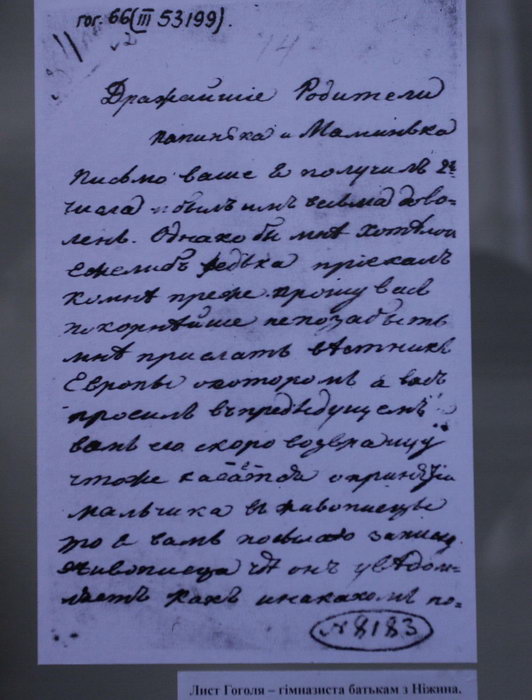 гог. 66 (III 53199).
Дражайшіе Родители
папинька и Маминька
Письмо ваше я получилъ 2го
числа и былъ имъ весьма дово-
ленъ. Однако бы мнѣ хотѣлось
ежелибъ Федька пріехалъ
комнѣ преже. прошу васъ
покорнѣйше непозабыть
мнѣ прислать вѣстникъ
Европы окоторомъ я васъ
просилъ въпредъидущемъ
вамъ его скоро возвращу
чтоже касается опринятіи
мальчика въ живописцы
то я вамъ посылаю записку
живописца онъ увѣдом-
ляетъ какъ инакакомъ по=
№ 8183
Лист Гоголя – гімназиста батькам з Ніжина.